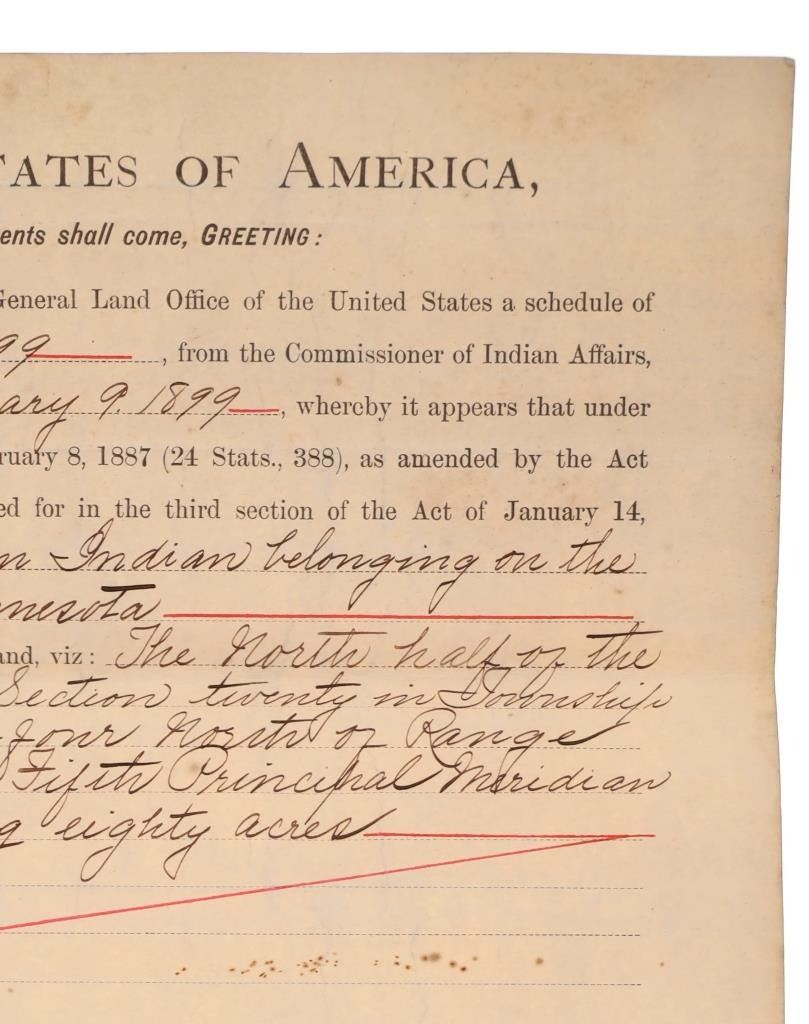 TATES OF AMERICA,
ents shall come, GREETING:
General Land Office of the United States a schedule of
99, from the Commissioner of Indian Affairs,
ary 9. 1899, whereby it appears that under
ruary 8, 1887 (24 Stats., 388), as amended by the Act
ed for in the third section of the Act of January 14,
n Indian belonging on the
nnesota
and, viz: The North half of the
Section twenty in Township
four North of Range
Fifth Principal Meridian
g eighty acres